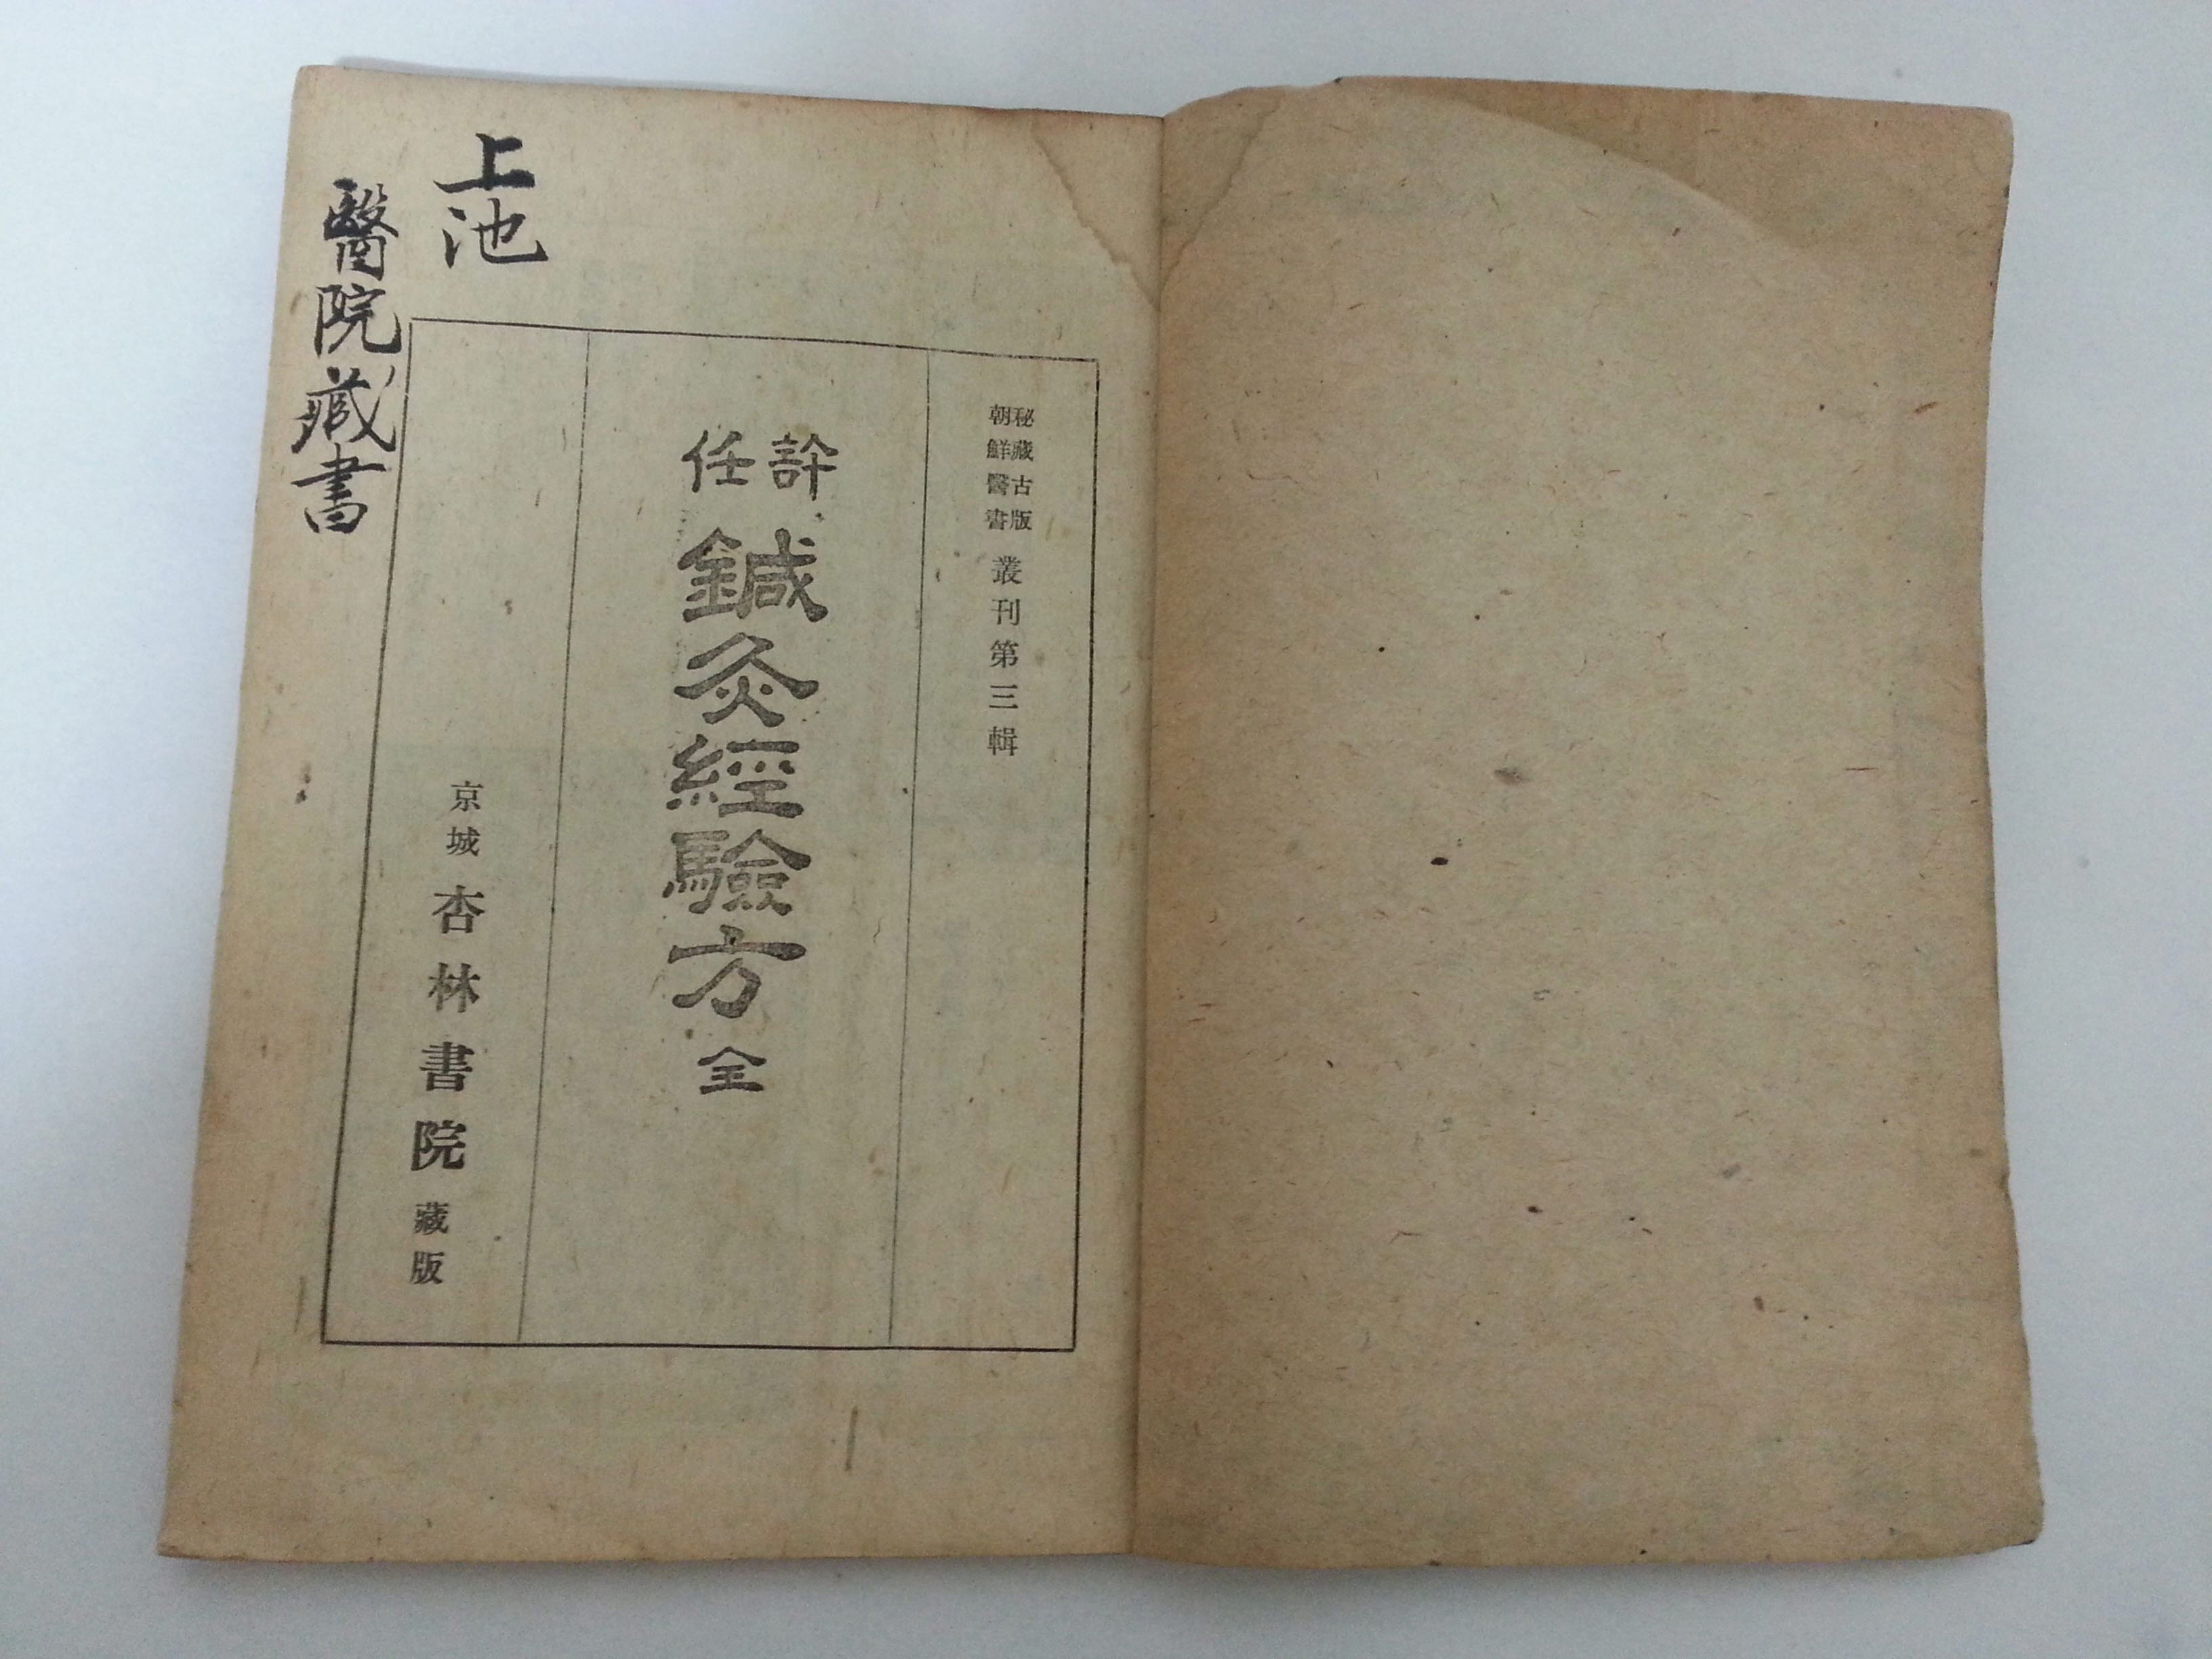 秘藏古版
朝鮮醫書
叢刊第三輯
許任
鍼灸經驗方 全
京城 杏林書院 藏版
上池
醫院藏書